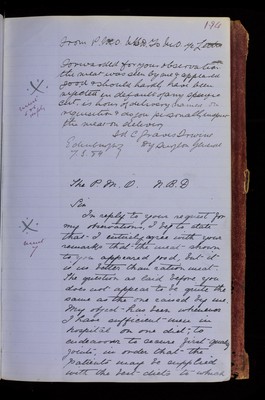 196
From P.M.O. N.B.D. To M.O.
Forwarded for your observation
the meat was seen by me & appeared
good & should hardly have been
rejected in default of any specific
hour of delivery named on
requisition
the meat on delivery
Sd C
Edinburgh Dy Surgeon General
7.3.89
The P. M. O. N. B. D
Sir
In reply to your request for
my observations, I beg to state
that I entirely agree with your
remarks that the meat shown
to you appeared good, but it
is no better than ration meat.
The question as laid before you
does not appear to be quite the
same as the one raised by me.
My object has been whenever
I have sufficient men in
hospital on one diet, to
endeavour to secure first quality
joints, in order that the
patients may be supplied
with the best diets to which